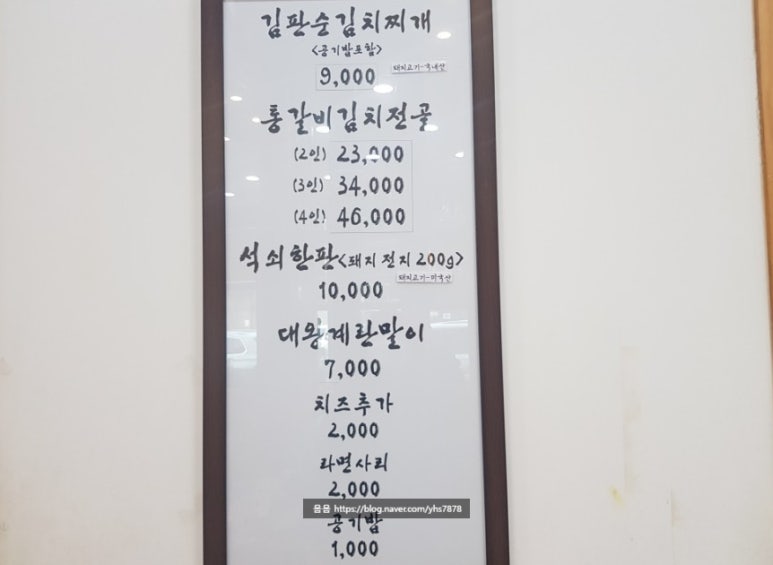 김판순김치찌개
<공기밥포함>
9,000
돼지고기-국내산
통갈비김치전골
(2인) 23,000
(3인) 34,000
(4인) 46,000
석쇠한판<돼지전지 200g>
돼지고기-미국산
10,000
대왕계란말이
7,000
치즈추가
2,000
라면사리
2,000
음음 https://blog.naver.com/yhs7878
공기밥
1,000